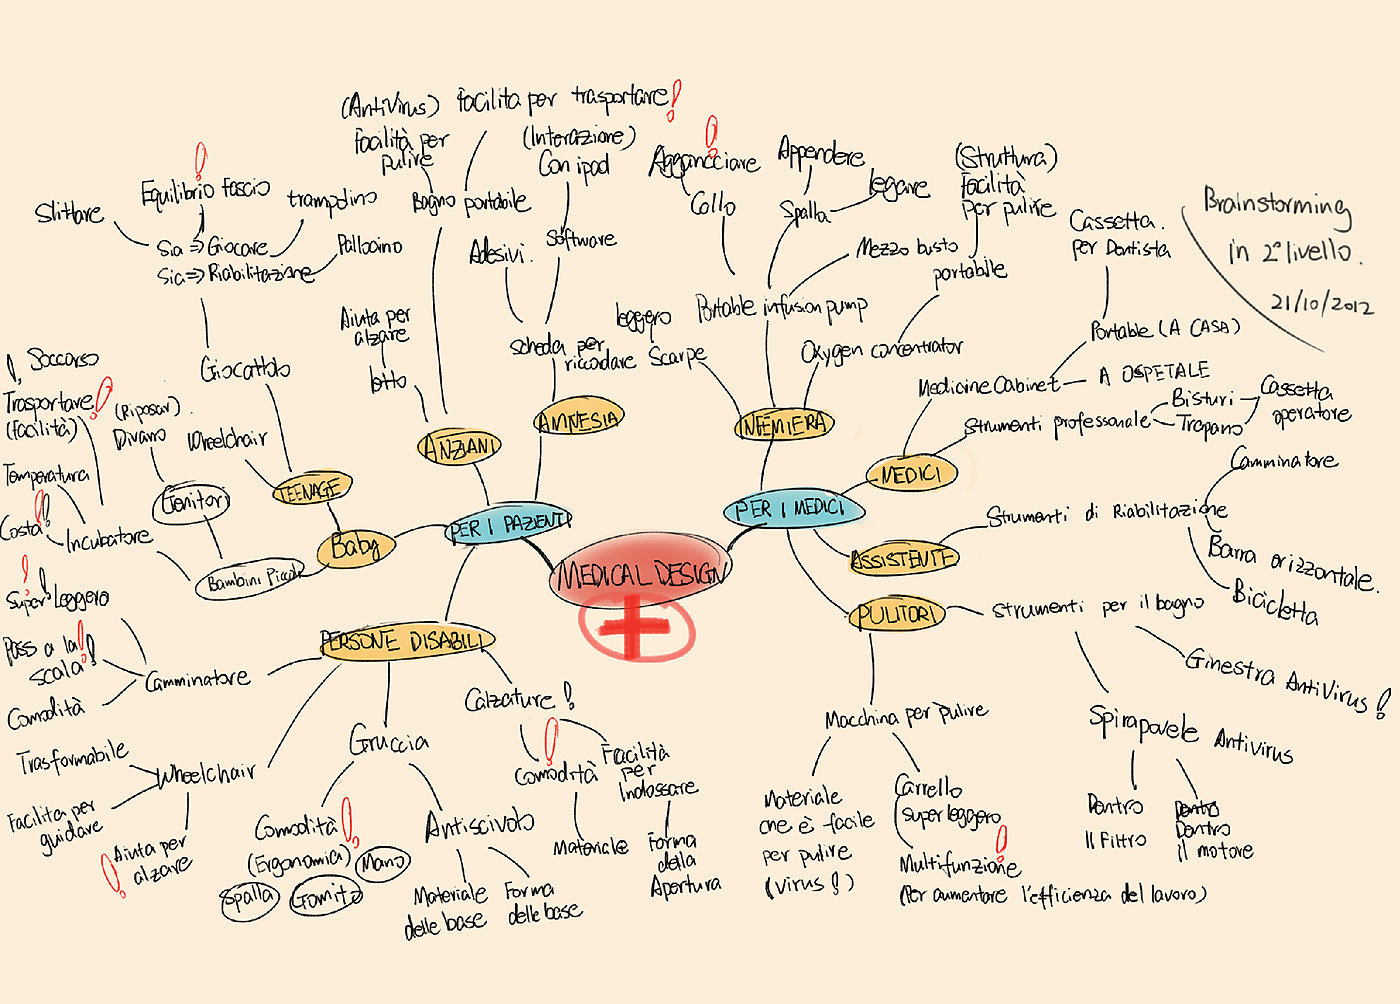 (AntiVirus) Facilità per trasportare!
Facilità per
pulire
(Interazione)
Con ipod
Bagno portabile
Agganciare
Appendere
legare
(Struttura)
Facilità
per pulire
Collo
Spalla
Brainstorming
in 2° livello.
21/10/2012
Cassetta
per Dentista
Slittare
Equilibrio
trampolino
Sia ⇒ Giocare
Sia ⇒ Riabilitazione
Palloncino
Adesivi.
Software
Mezzo busto
portabile
Portable infusion pump
Aiuta per
alzare
letto
scheda per
riccodare
leggero
Scarpe
Oxygen concentrator
Portable (A CASA)
Medicine Cabinet
A OSPETALE
Strumenti professonale
Bisturi
Trapano
Cassetta
operatore
Giocattolo
! Soccorso
Trasportare!
(Facilità)
(Riposar).
Divano
Wheelchair
Temperatura
Costa!!
Incubatore
Genitori
TEENAGE
ANZIANI
AMNESIA
INFEMIERA
MEDICI
Camminatore
PER I PAZIENTI
PER I MEDICI
Strumenti di Riabilitazione
Barra orizzontale.
Bicicletta
Baby
Bambini Piccoli
MEDICAL DESIGN
ASSISTENTE
PULITORI
Strumenti per il bagno
Ginestra AntiVirus!
Super! Leggero
Pass a la
scala!!
Comodità
Camminatore
PERSONE DISABILI
Calzature!
Trasformabile
Facilita per
guidare
Wheelchair
Aiuta per
alzare
Gruccia
Comodità!
(Ergonomia)
Mano
Spalla
Gomito
Antiscivolo
Materiale
delle base
Forma
delle base
Comodità
Facilità
per
Indossare
Materiale
Forma
della
Apertura
Macchina per pulire
Materiale
che è facile
per pulire
(virus!)
Carrello
superleggero
Multifunzione
(Per aumentare l'efficienza del lavoro)
Spirapovele Antivirus
Dentro
Il Filtro
Dentro
Dentro
Il motore